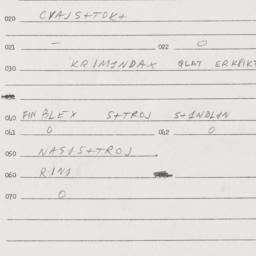 020 CVAJS+TOK+
021 — 022 0
030 KRIMINDAX GLAT ERKRIKT
040 FIN BLEX S+TROJ S+INDLIN
041 0 042 0
050 NASIS+TROJ
060 RINI
070 0